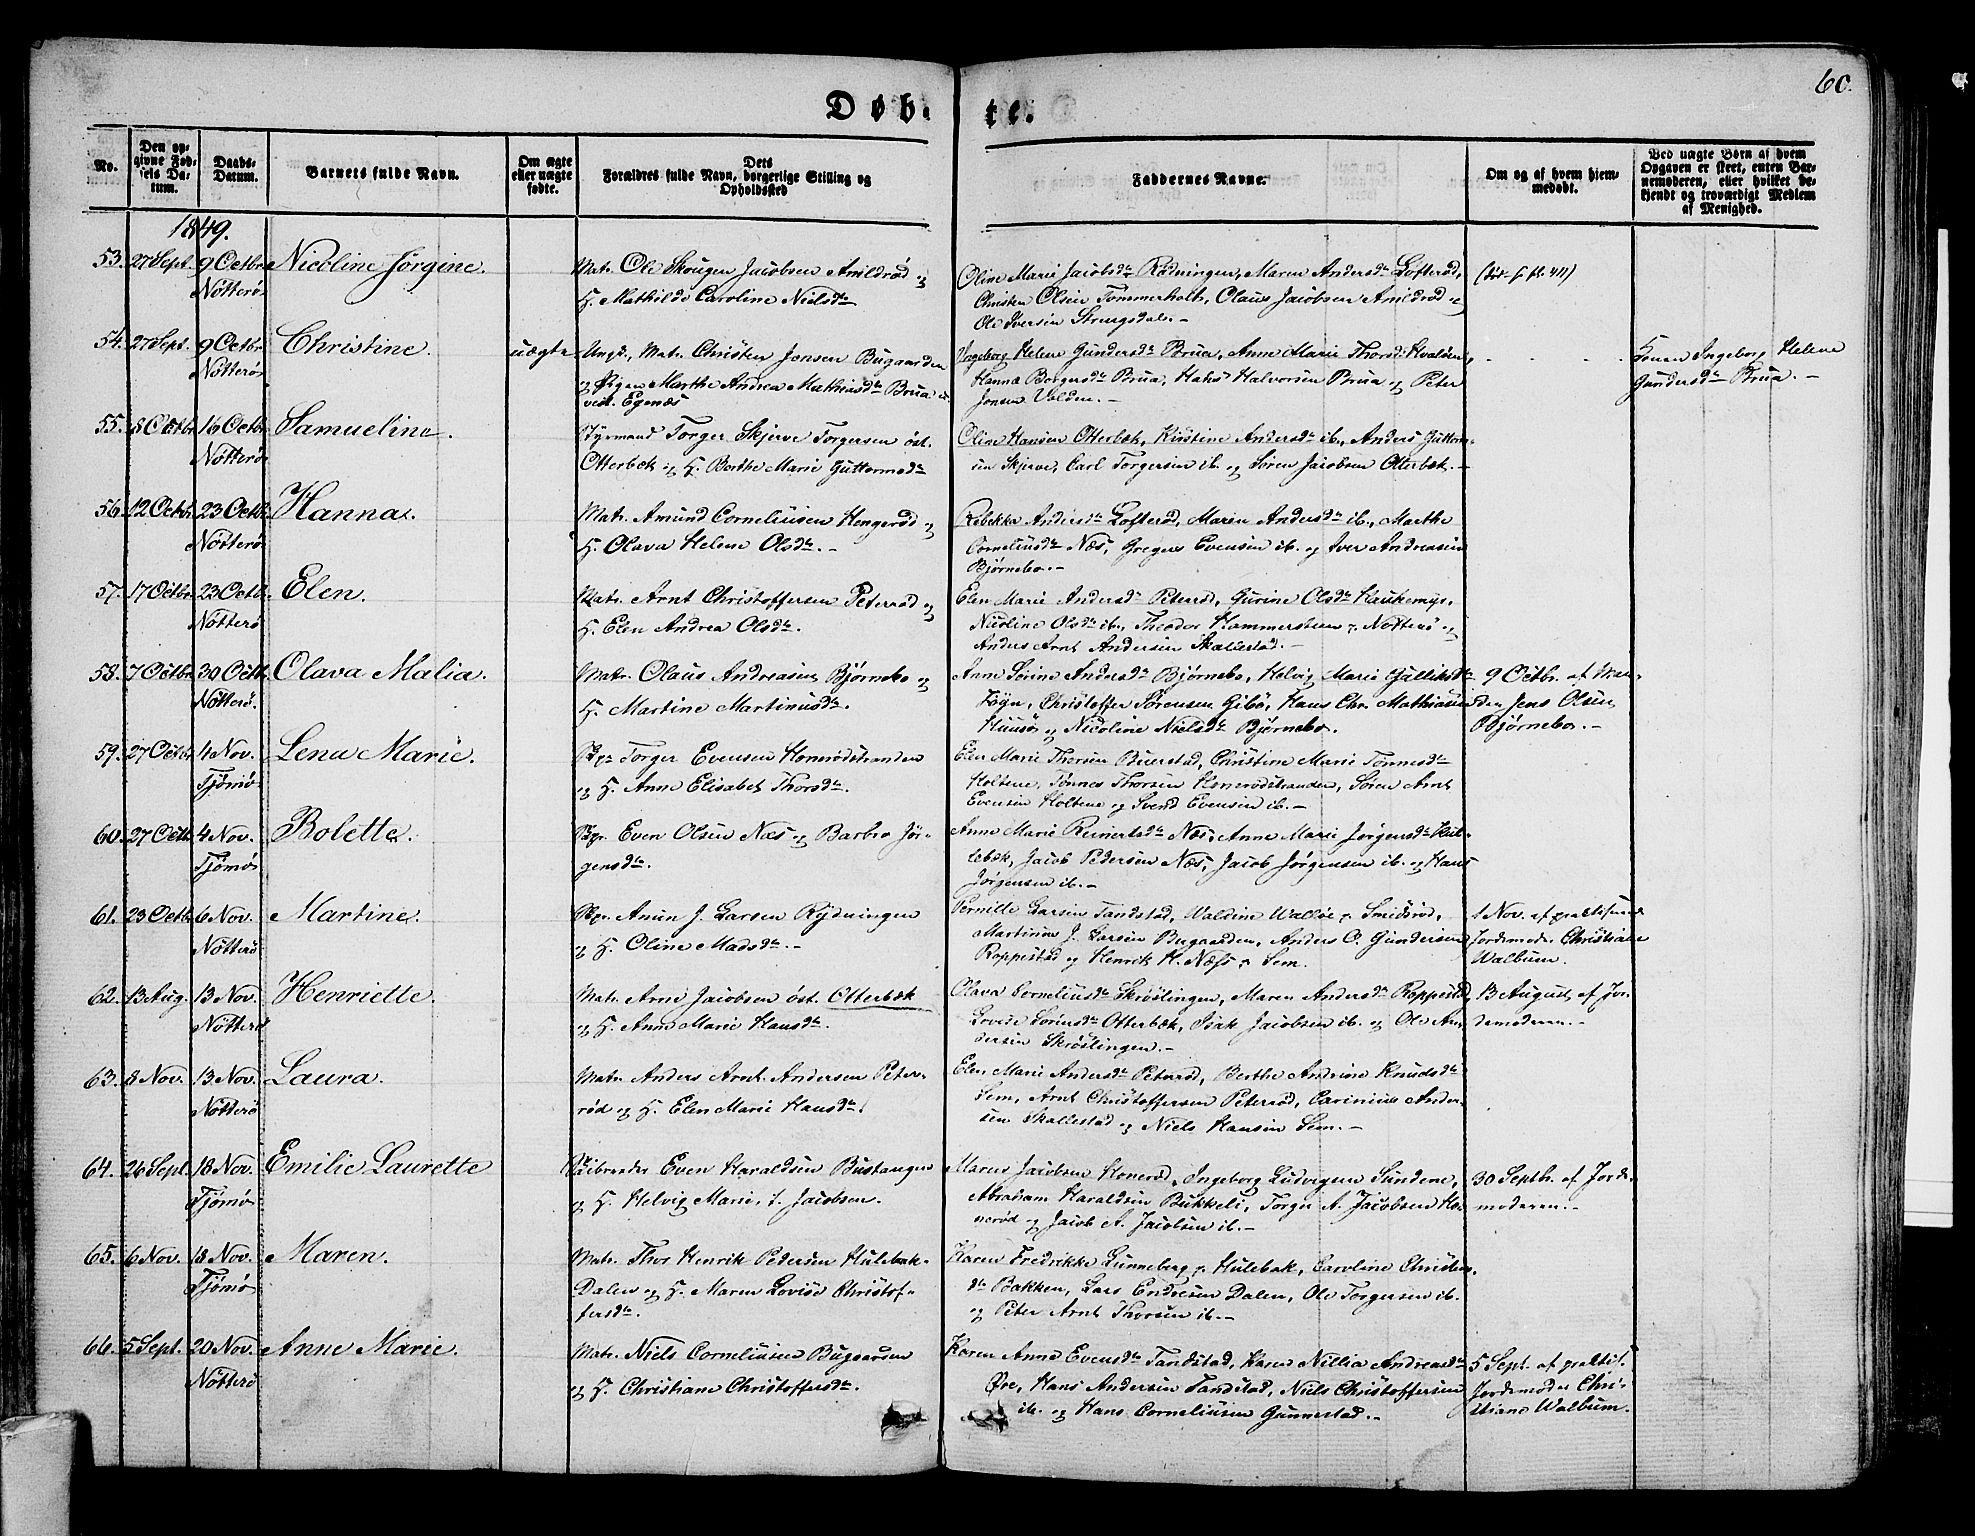 60.
Døb- te.
No.
Den op-
givne Fød-
sels Da-
tum.
Daabs-
Datum.
Barnets fulde Navn.
Om ægte
eller uægte
fødte.
Dets
Forældres fulde Navn, borgerlige Stilling og
Opholdssted
Faddernes Navne.
Om og af hvem hjem-
medøbt.
Ved uægte Børn af hvem
Opgaven er skeet, enten Bar-
nemoderen, eller hvilket be-
kjendt og troværdigt Medlem
af Menighed.
1849.
53. 27 Sept. 9 Octbr. Nicoline Jørgine.
Nötterö
Matr. Ole Skougen Jacobsen Arildrød og
H. Mathilde Caroline Nielsdtr
Oline Marie Jacobsdtr Rødningen, Maren Andersdtr Lofterød,
Christen Olsen Tommerholt, Olaus Jacobsen Arildrød og
Ole Iversen Strengsdal.-
54. 27 Sept. 9 Octbr. Christine. uægte
Nötterö
Ungk. Matr. Christen Jensen Bugaarden
og Pigen Marthe Andrea Mathiasdtr Brua
vest. Egenæs
Ingeborg Helene Gundersdtr Brua, Anne Marie Thorsdtr Hvalöen,
Hanne Borgersdtr Brua, Hans Halvorsen Brua og Peter
Jensen Valden.-
Konen Ingeborg Helene
Gundersdtr Brua.-
55. 8 Octbr. 16 Octbr. Samueline.
Nötterö
Styrmand Torger Skjerve Torgersen öst.
Otterbek og H. Berthe Marie Guttormsdtr
Oline Hansen Otterbek, Kirstine Andersdtr ib., Anders Guttorm-
sen Skjerve, Carl Torgersen ib. og Søren Jacobsen Otterbek.-
56. 12 Octbr. 23 Octbr. Hanna.
Nötterö
Matr. Amund Corneliusen Hengerød og
H. Olava Helene Olsdtr.-
Rebekka Andersdtr Lofterød, Maren Andersdtr ib., Marthe
Corneliusdtr Næs, Gregers Evensen ib. og Iver Andreasen
Bjørnebo.-
57. 17 Octbr. 23 Octbr. Elen.
Nötterö
Matr. Arnt Christoffersen Peterrød og
H. Elen Andrea Olsdtr.
Elen Marie Andersdtr Peterrød, Gurine Olsdtr Haukemyr,
Nicoline Olsdtr ib., Theodor Hammersteen p. Nötterö og
Anders Arnt Andersen Skallestad.-
58. 7 Octbr. 30 Octbr. Olava Malia.
Nötterö.
Matr. Olaus Andreasen Bjørnebo og
H. Martine Martinusdtr.
Anne Sørine Andersdtr Bjørnebo, Helvig Marie Gulliksdtr
Christoffer Sørensen Gibö, Hans Chr. Mathiasen
og Nicoline Nielsdtr Bjørnebo.
9 Octbr. af Man-
den Jens Olsen
Bjørnebo.-
59. 27 Octbr. 4 Nov. Lena Marie.
Tjömö
Torger Evensen Honerødstranden
og H. Anne Elisabet Thorsdtr.
Elen Marie Thorsen Buerstad, Christine Marie Tønnesdtr
Holtene, Tønnes Thorsen Honerødstranden, Søren Arnt
Evensen Holtene og Svend Evensen ib.-
60. 27 Octbr. 4 Nov. Bolette.
Tjömö
Even Olsen Næs og Barbro Jör-
gensdtr.
Anne Marie Reinertsdtr Næs, Anne Marie Jörgensdtr Hul-
lebæk, Jacob Pedersen Næs, Jacob Jörgensen ib. og Hans
Jörgensen ib.-
61. 23 Octbr. 6 Nov. Martine.
Nötterö
Amun J. Larsen Rydningen
og H. Oline Madsdtr.-
Pernille Larsen Tandstad, Waldine Walløe p. Smidsrød,
Martinus J. Larsen Bugaarden, Anders O. Gundersen
Roppestad og Henrik H. Næss p. Sem.
1 Nov. af praktiserende
Jordemoder Christiane
Walbum.
62. 13 Aug. 13 Nov. Henriette.
Nötterö
Matr. Arne Jacobsen öst. Otterbæk
og H. Anne Marie Hansdtr.
Olava Corneliusdtr Skröslingen, Maren Andersdtr Roppestad,
Lovise Sörensdtr Otterbek, Isak Jacobsen ib. og Ole An-
dersen Skröslingen.-
13 August, af Jor-
demoderen.-
63. 8 Nov. 13 Nov. Laura.
Nötterö
Matr. Anders Arnt Andersen Peter-
rød og H. Elen Marie Hansdtr.
Elen Marie Andersdtr Peterrød, Berthe Andrine Knudsdtr
Sem, Arnt Christoffersen Peterrød, Carinius Ander-
sen Skallestad og Niels Hansen Sem.-
64. 26 Sept. 18 Nov. Emilie Laurette
Tjömö
Even Haraldsen Bustangen
og H. Helvig Marie, f. Jacobsen.
Maren Jacobsen Honerød, Ingeborg Ludvigsen Sundene,
Abraham Haraldsen Bukkeli, Torger A. Jacobsen Ho-
nerød og Jacob A. Jacobsen ib.-
30 Septbr. af Jorde-
moderen.-
65. 6 Nov. 18 Nov. Maren.
Tjömö
Matr. Thor Henrik Pedersen Hulebak-
Dalen og H. Maren Lovise Christof-
fersdtr.
Karen Fredrikke Lunneberg p. Hulebak, Caroline Christens-
dtr Bakken, Lars Endresen Dalen, Ole Torgersen ib.
og Peter Arnt Thorsen ib.-
66. 5 Sept. 20 Nov. Anne Marie.
Nötterö
Matr. Niels Corneliusen Bugaarden
og H. Christiane Christoffersdtr.
Karen Anne Evensdtr Tandstad, Karen Nillia Andreasdtr
Øre, Hans Andersen Tandstad, Niels Christoffersen
ib. og Hans Corneliusen Gunnestad.-
5 Sept. af praktis.
Jordemoder Chri-
stiane Walbum.